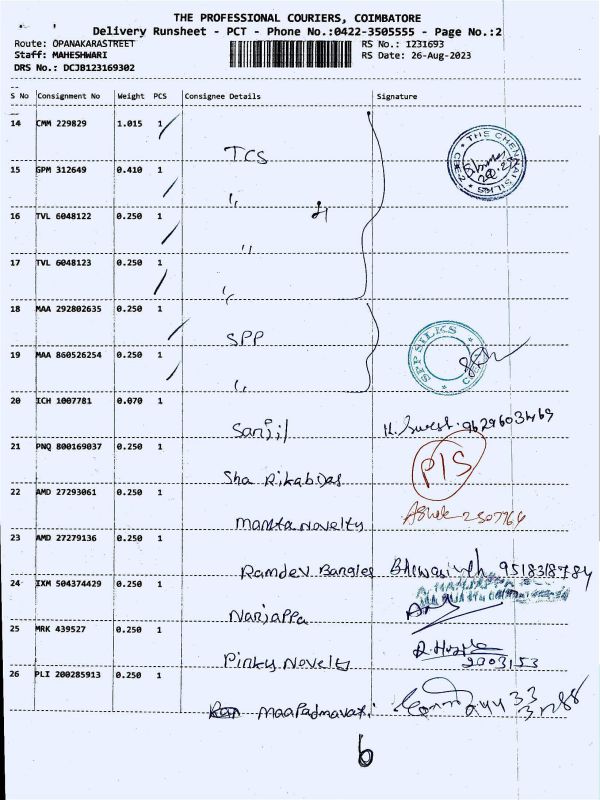 THE PROFESSIONAL COURIERS, COIMBATORE
Delivery Runsheet - PCT - Phone No.:0422-3505555 - Page No.:2
Route: OPANAKARASTREET RS No.: 1231693
Staff: MAHESHWARI RS Date: 26-Aug-2023
DRS No.: DCJB123169302
S No Consignment No Weight PCS Consignee Details Signature
14 CMM 229829 1.015 1 TCS
THE CHENNAI SILKS
CBE-2
15 GPM 312649 0.410 1 "
16 TVL 6048122 0.250 1 "
17 TVL 6048123 0.250 1 "
18 MAA 292802635 0.250 1 SPP
SPP SILKS
19 MAA 860526254 0.250 1 "
20 ICH 1007781 0.070 1 Sanjil
21 PNQ 800169037 0.250 1 Sha Rikabdas PIS
22 AMD 27293061 0.250 1 Mamta Novelty Ashok
23 AMD 27279136 0.250 1 Ramdev Bangles 9518318784
24 IXM 504374429 0.250 1 Narjappa
25 MRK 439527 0.250 1 Pinky Novelty
2903153
26 PLI 200285913 0.250 1 Maa Padmavati
6